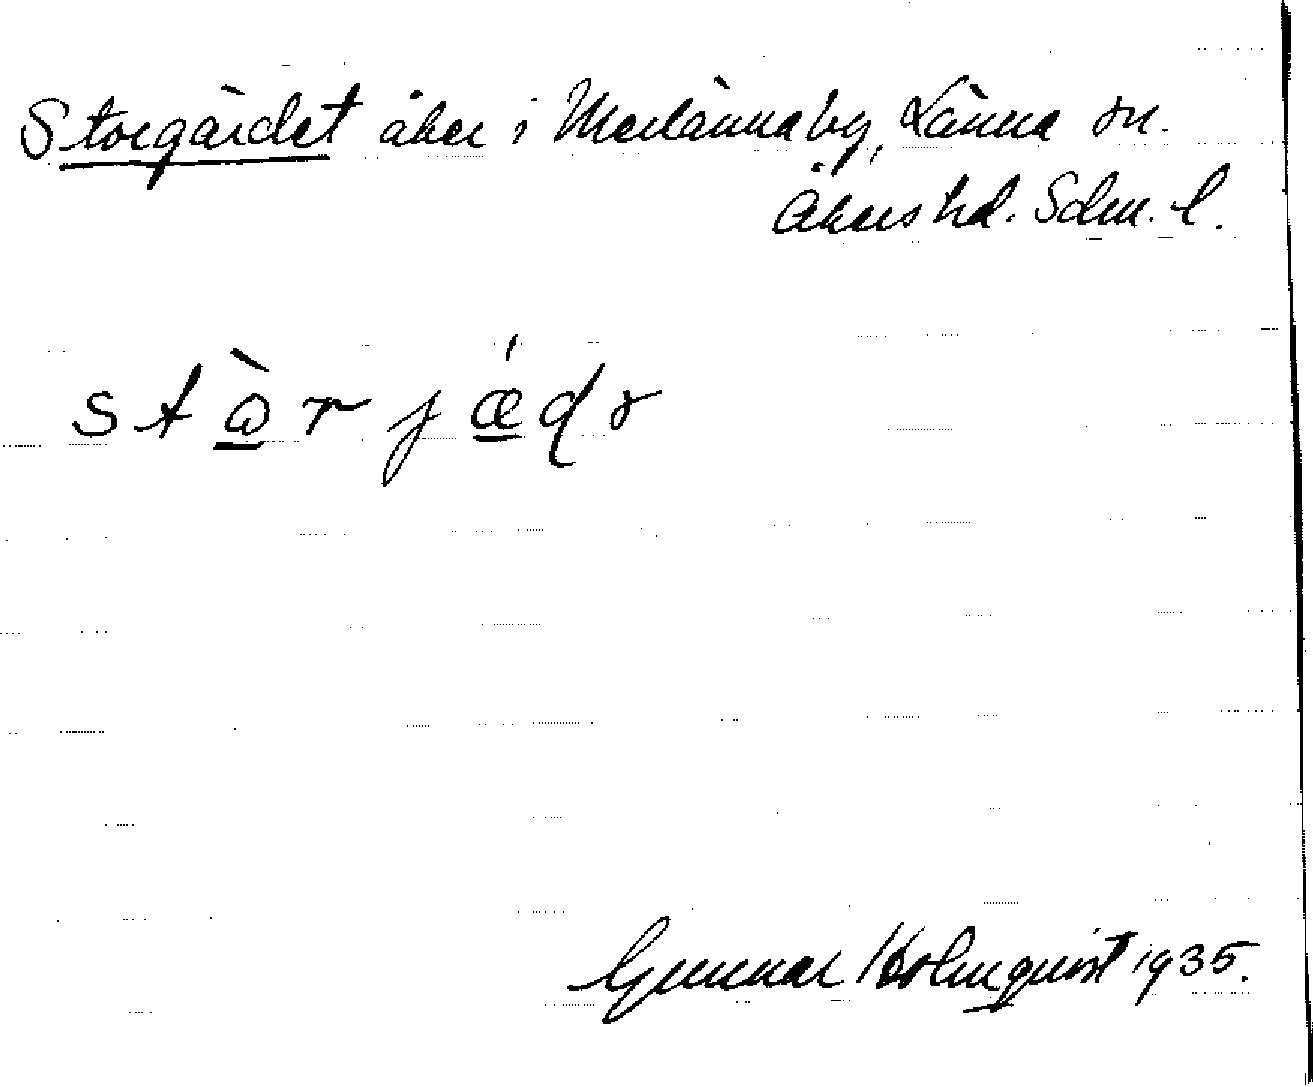 Storgärdet åker i Merlänna by, Länna sn.
Åkers hd. Sdm. l.
stὼrjǽdɘ
Gunnar Holmquist 1935.